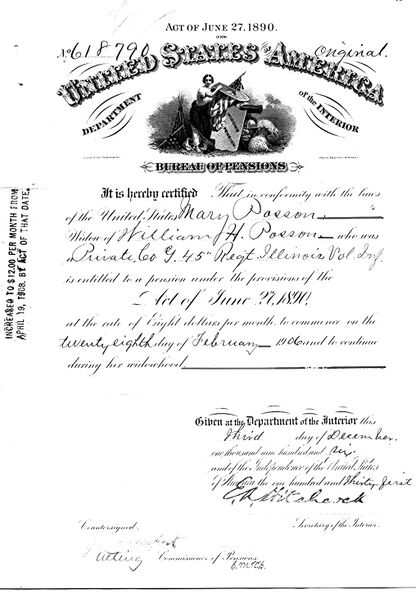 ACT OF JUNE 27, 1890.
No 618790 Original.
UNITED STATES OF AMERICA
DEPARTMENT of the INTERIOR
BUREAU OF PENSIONS
It is hereby certified That in conformity with the laws
of the United States Mary Posson
Widow of William H. Posson who was
a Private Co G. 45th Regt Illinois Vol Inf.
is entitled to a pension under the provisions of the
Act of June 27, 1890.
at the rate of Eight dollars per month, to commence on the
twenty eighth day of February 1906 and to continue
during her widowhood
INCREASED TO $12.00 PER MONTH FROM
APRIL 19, 1908, BY ACT OF THAT DATE.
Given at the Department of the Interior this
third day of December
one thousand nine hundred and six
and of the Independence of the United States
of America the one hundred and thirty first
E.A. Hitchcock
Countersigned. Secretary of the Interior.
Acting Commissioner of Pensions